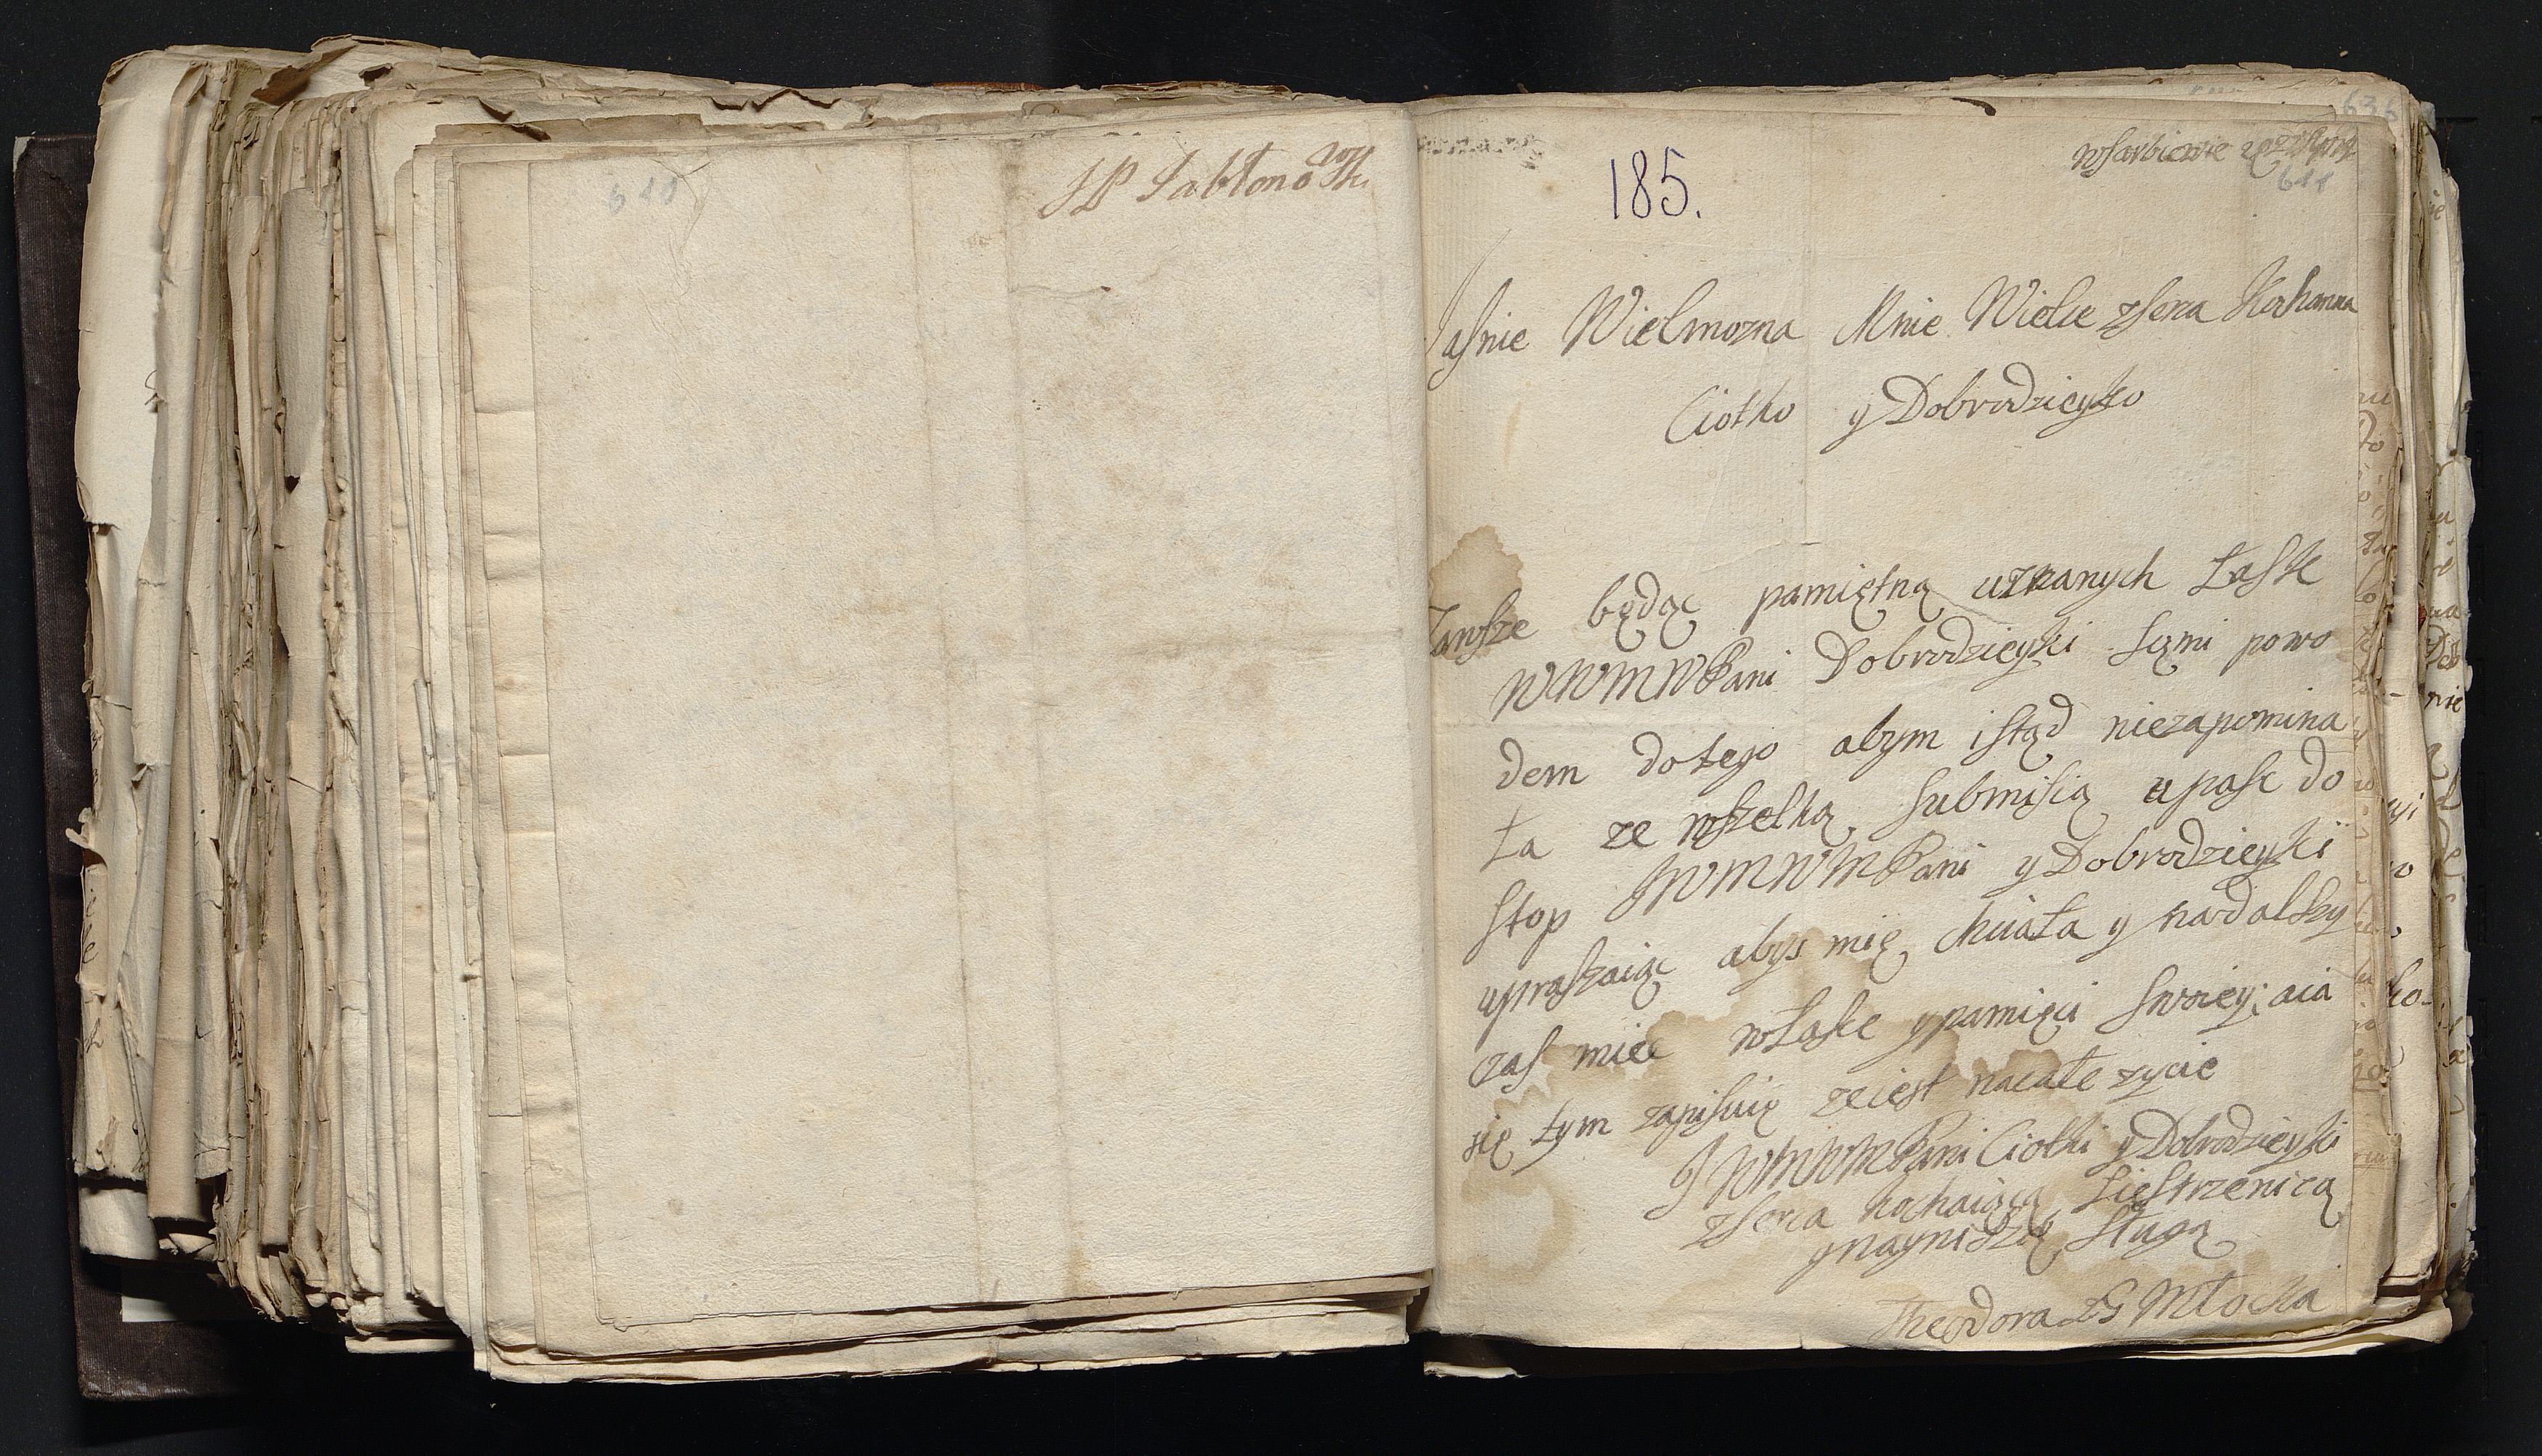 611
JP Jabłono Wsk.
636
wsarbiewie
611
185.
Jasnie Wielmozna Mnie Wielce zserca Kochanna
Ciotko y Dobrodzieyko
Zawsze będąc pamiętną uznanych Łask
WWMWPani Dobrodzieyki Sąmi powo
dem dotego abym istąd niezapomina
ła ze wszelką submisią upasc do
stop JWMWMPani y Dobrodzieyki
upraszaiąc abys mię chciała y nadalszy
czas miec własce ypamięci swoiey; aia
się tym zapisuię zeiest nacałe zycie
JWMWMPani Ciotki y Dobrodzieyki
zserca kochaiącą Siestrzenicą
ynaynisszą sługą
Theodora zG Młocka